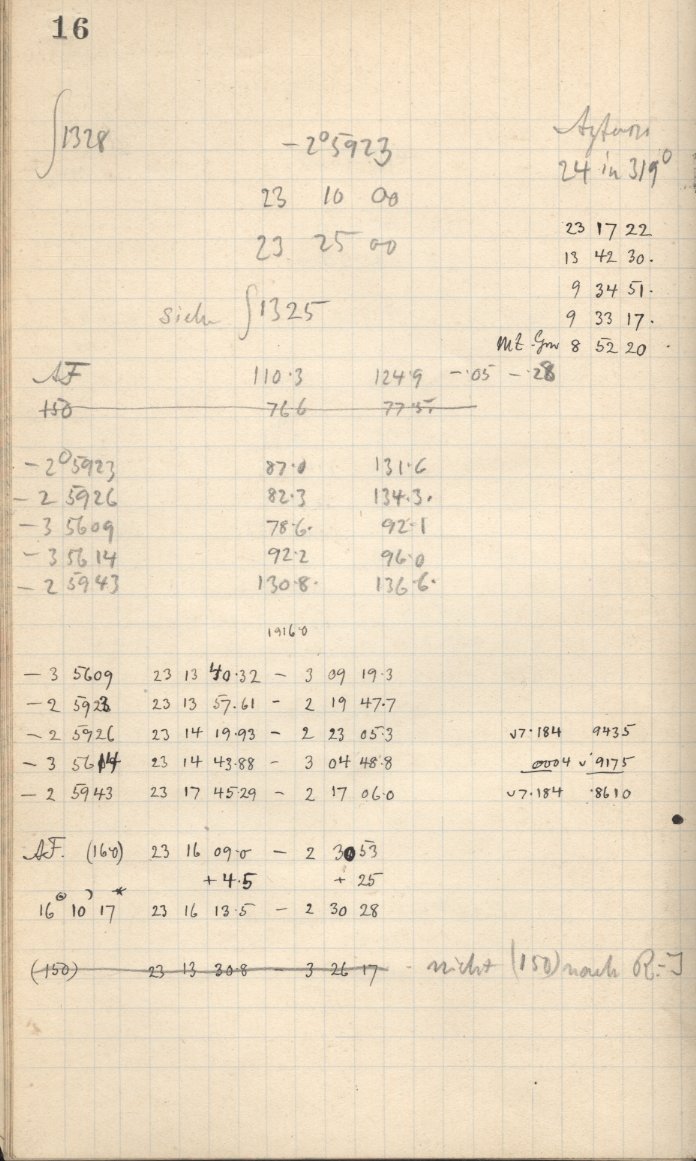 16
∫1328
-2° 5923
24 in 319°
23 10 00
23 25 00
23 17 22
13 42 30.
9 34 51.
9 33 17.
8 52 20.
∫1325
AF 110.3 124.9 -.05 -.28
150 76.6 77.5
-2° 5923 87.0 131.6
-2 5926 82.3 134.3.
-3 5609 78.6. 92.1
-3 5614 92.2 96.0
-2 5943 130.8. 136.6.
1916.0
-3 5609 23 13 40.32 - 3 09 19.3
-2 5923 23 13 57.61 - 2 19 47.7
-2 5926 23 14 19.93 - 2 23 05.3
-3 5614 23 14 43.88 - 3 04 48.8
-2 5943 23 17 45.29 - 2 17 06.0
7.184 9435
0004 9175
7.184 .8610
AF. (16.0) 23 16 09.0 - 2 30 53
+4.5 + 25
16 10 17 23 16 13.5 - 2 30 28
(150) 23 13 30.8 - 3 26 17 - nicht (150) nach R.-J